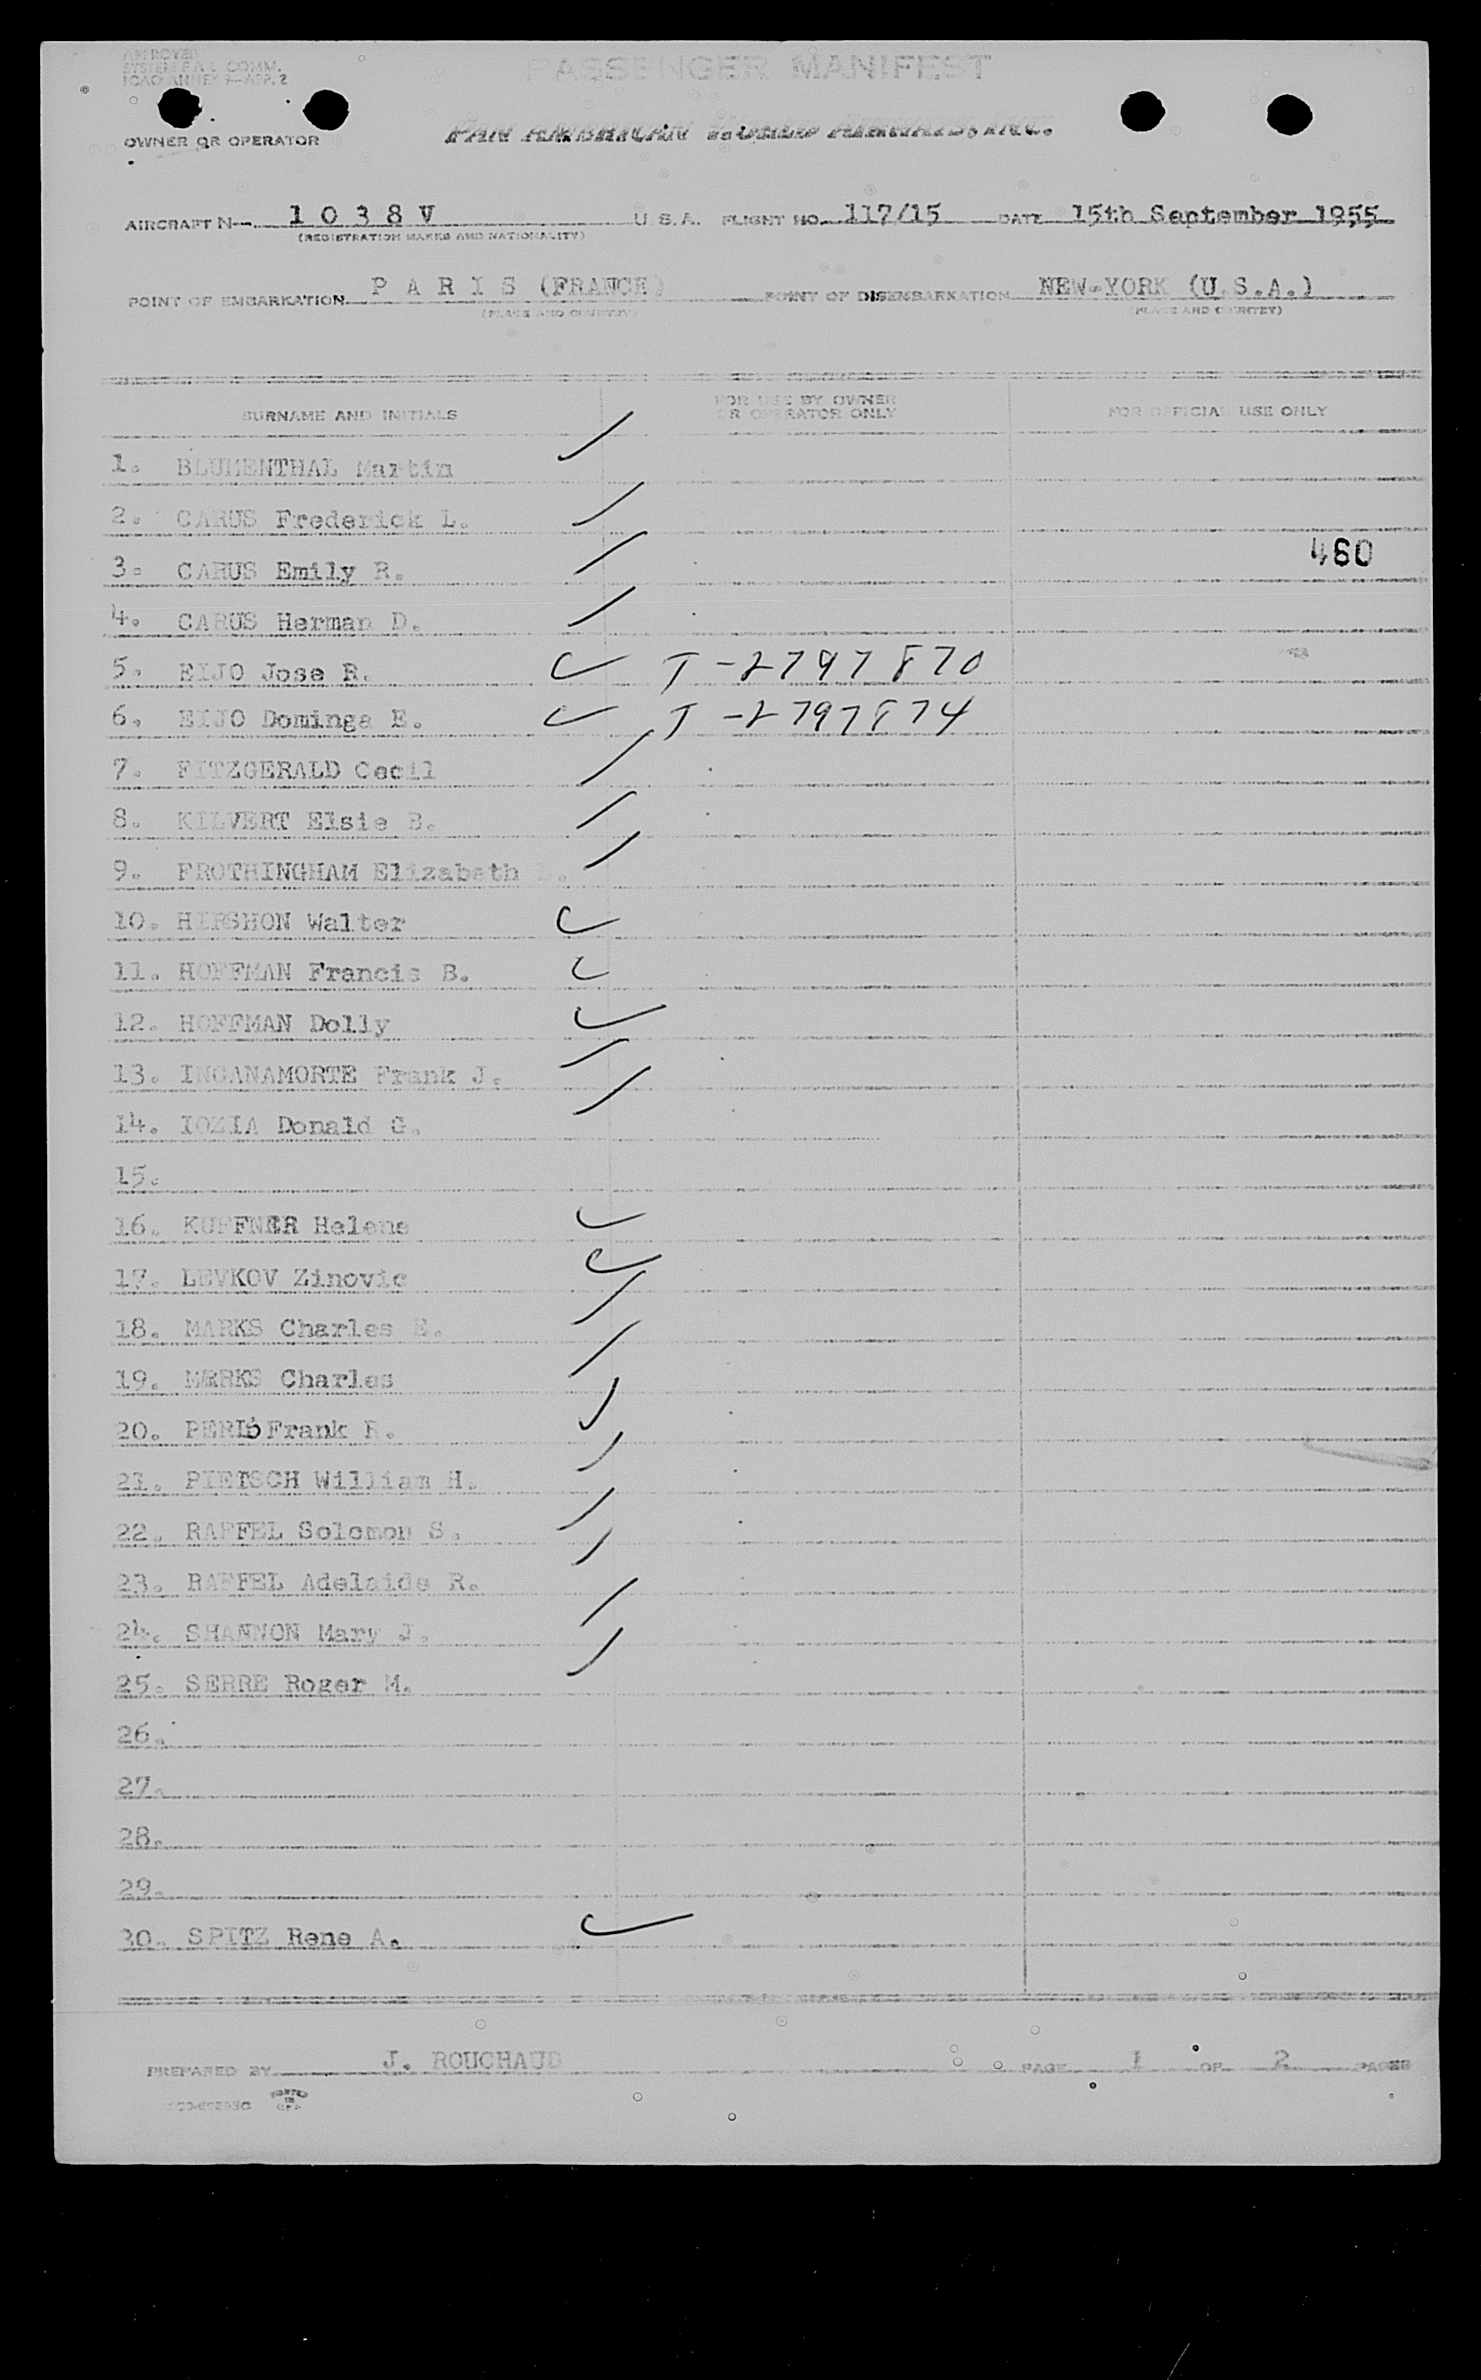 APPROVED
SYSTEM F.A.L. COMM.
ICAO ANNEX 9—APP. 2
PASSENGER MANIFEST
OWNER OR OPERATOR PAN AMERICAN WORLD AIRWAYS, INC.
AIRCRAFT N— 1 0 3 8 V U.S.A. FLIGHT NO. 117/15 DATE 15th September 1955
(REGISTRATION MARKS AND NATIONALITY)
POINT OF EMBARKATION P A R I S (FRANCE) POINT OF DISEMBARKATION NEW-YORK (U.S.A.)
(PLACE AND COUNTRY) (PLACE AND COUNTRY)
SURNAME AND INITIALS FOR USE BY OWNER OR OPERATOR ONLY FOR OFFICIAL USE ONLY
1. BLUMENTHAL Martin
2. CARUS Frederick L.
480
3. CARUS Emily R.
4. CARUS Herman D.
5. EIJO Jose R. T-2797870
6. EIJO Dominga E. T-2797874
7. FITZGERALD Cecil
8. KILVERT Elsie B.
9. FROTHINGHAM Elizabeth
10. HIRSHON Walter
11. HOFFMAN Francis B.
12. HOFFMAN Dolly
13. INGANAMORTE Frank J.
14. IOZIA Donald G.
15.
16. KUFFNER Helene
17. LEVKOV Zinovie
18. MARKS Charles E.
19. MARKS Charles
20. PERLS Frank R.
21. PIETSCH William H.
22. RAFFEL Solomon S.
23. RAFFEL Adelaide R.
24. SHANNON Mary J.
25. SERRE Roger M.
26.
27.
28.
29.
30. SPITZ Rene A.
PREPARED BY J. ROUCHAUD PAGE 1 OF 2 PAGES
PRINTED IN